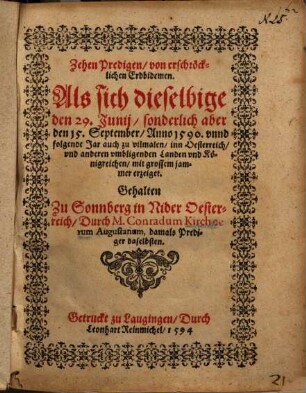 Zehen Predigen / von erschröck-
lichen Erdbidemen.
Als sich dieselbige
den 29. Junij / sonderlich aber
den 15. September / Anno 1590. vnnd
folgende Jar auch zu vilmalen / inn Oesterreich /
vnd anderen vmbligenden Landen vnd Kö-
nigreichen / mit grossem jam-
mer erzeiget.
Gehalten
Zu Sonnberg in Nider Oester-
reich / Durch M. Conradum Kirchne
rum Augustanum, damals Predi-
ger daselbsten.
Getruckt zu Laugingen / Durch
Leonhart Reinmichel / 1594